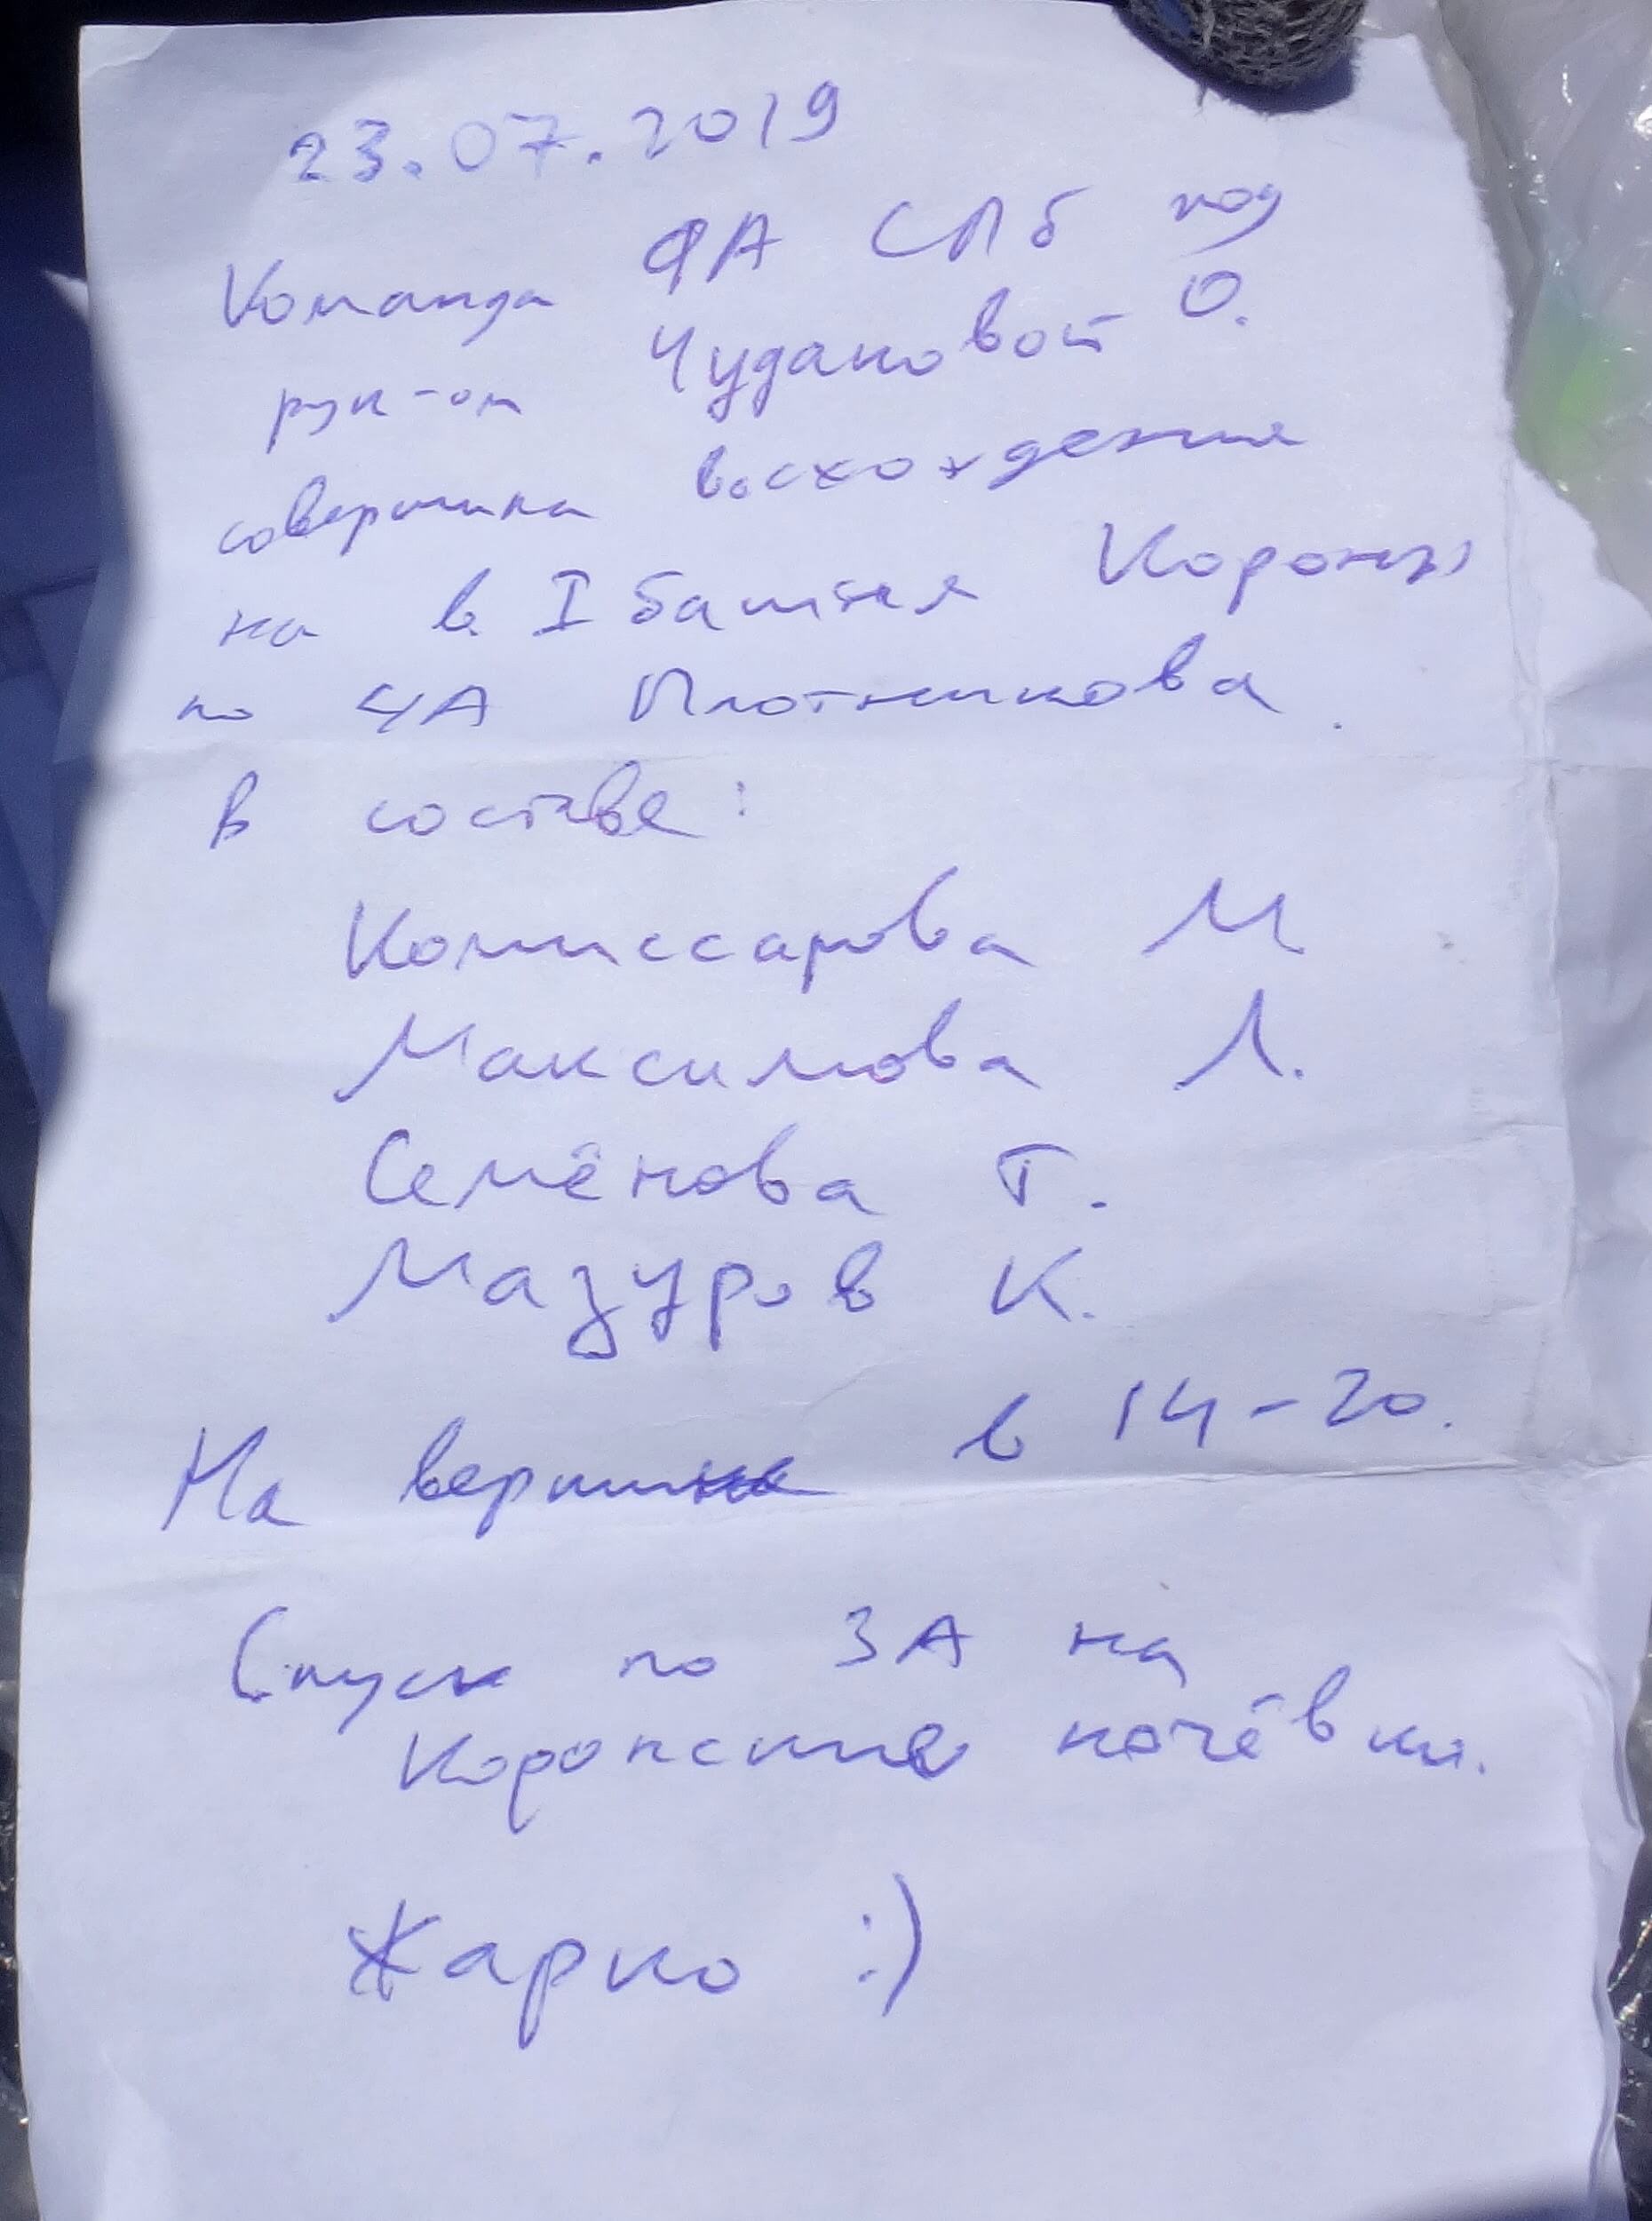 23.07.2019
Команда ФА СПб под
рук-ом Чудаковой О.
совершила восхождение
на в. I башня Короны
по 4А Плотникова.
В составе:
Комиссарова М
Максимова Л.
Семёнова Т.
Мазуров К.
На вершине в 14-20.
Спуск по 3А на
Коронские ночёвки.
Жарко :)